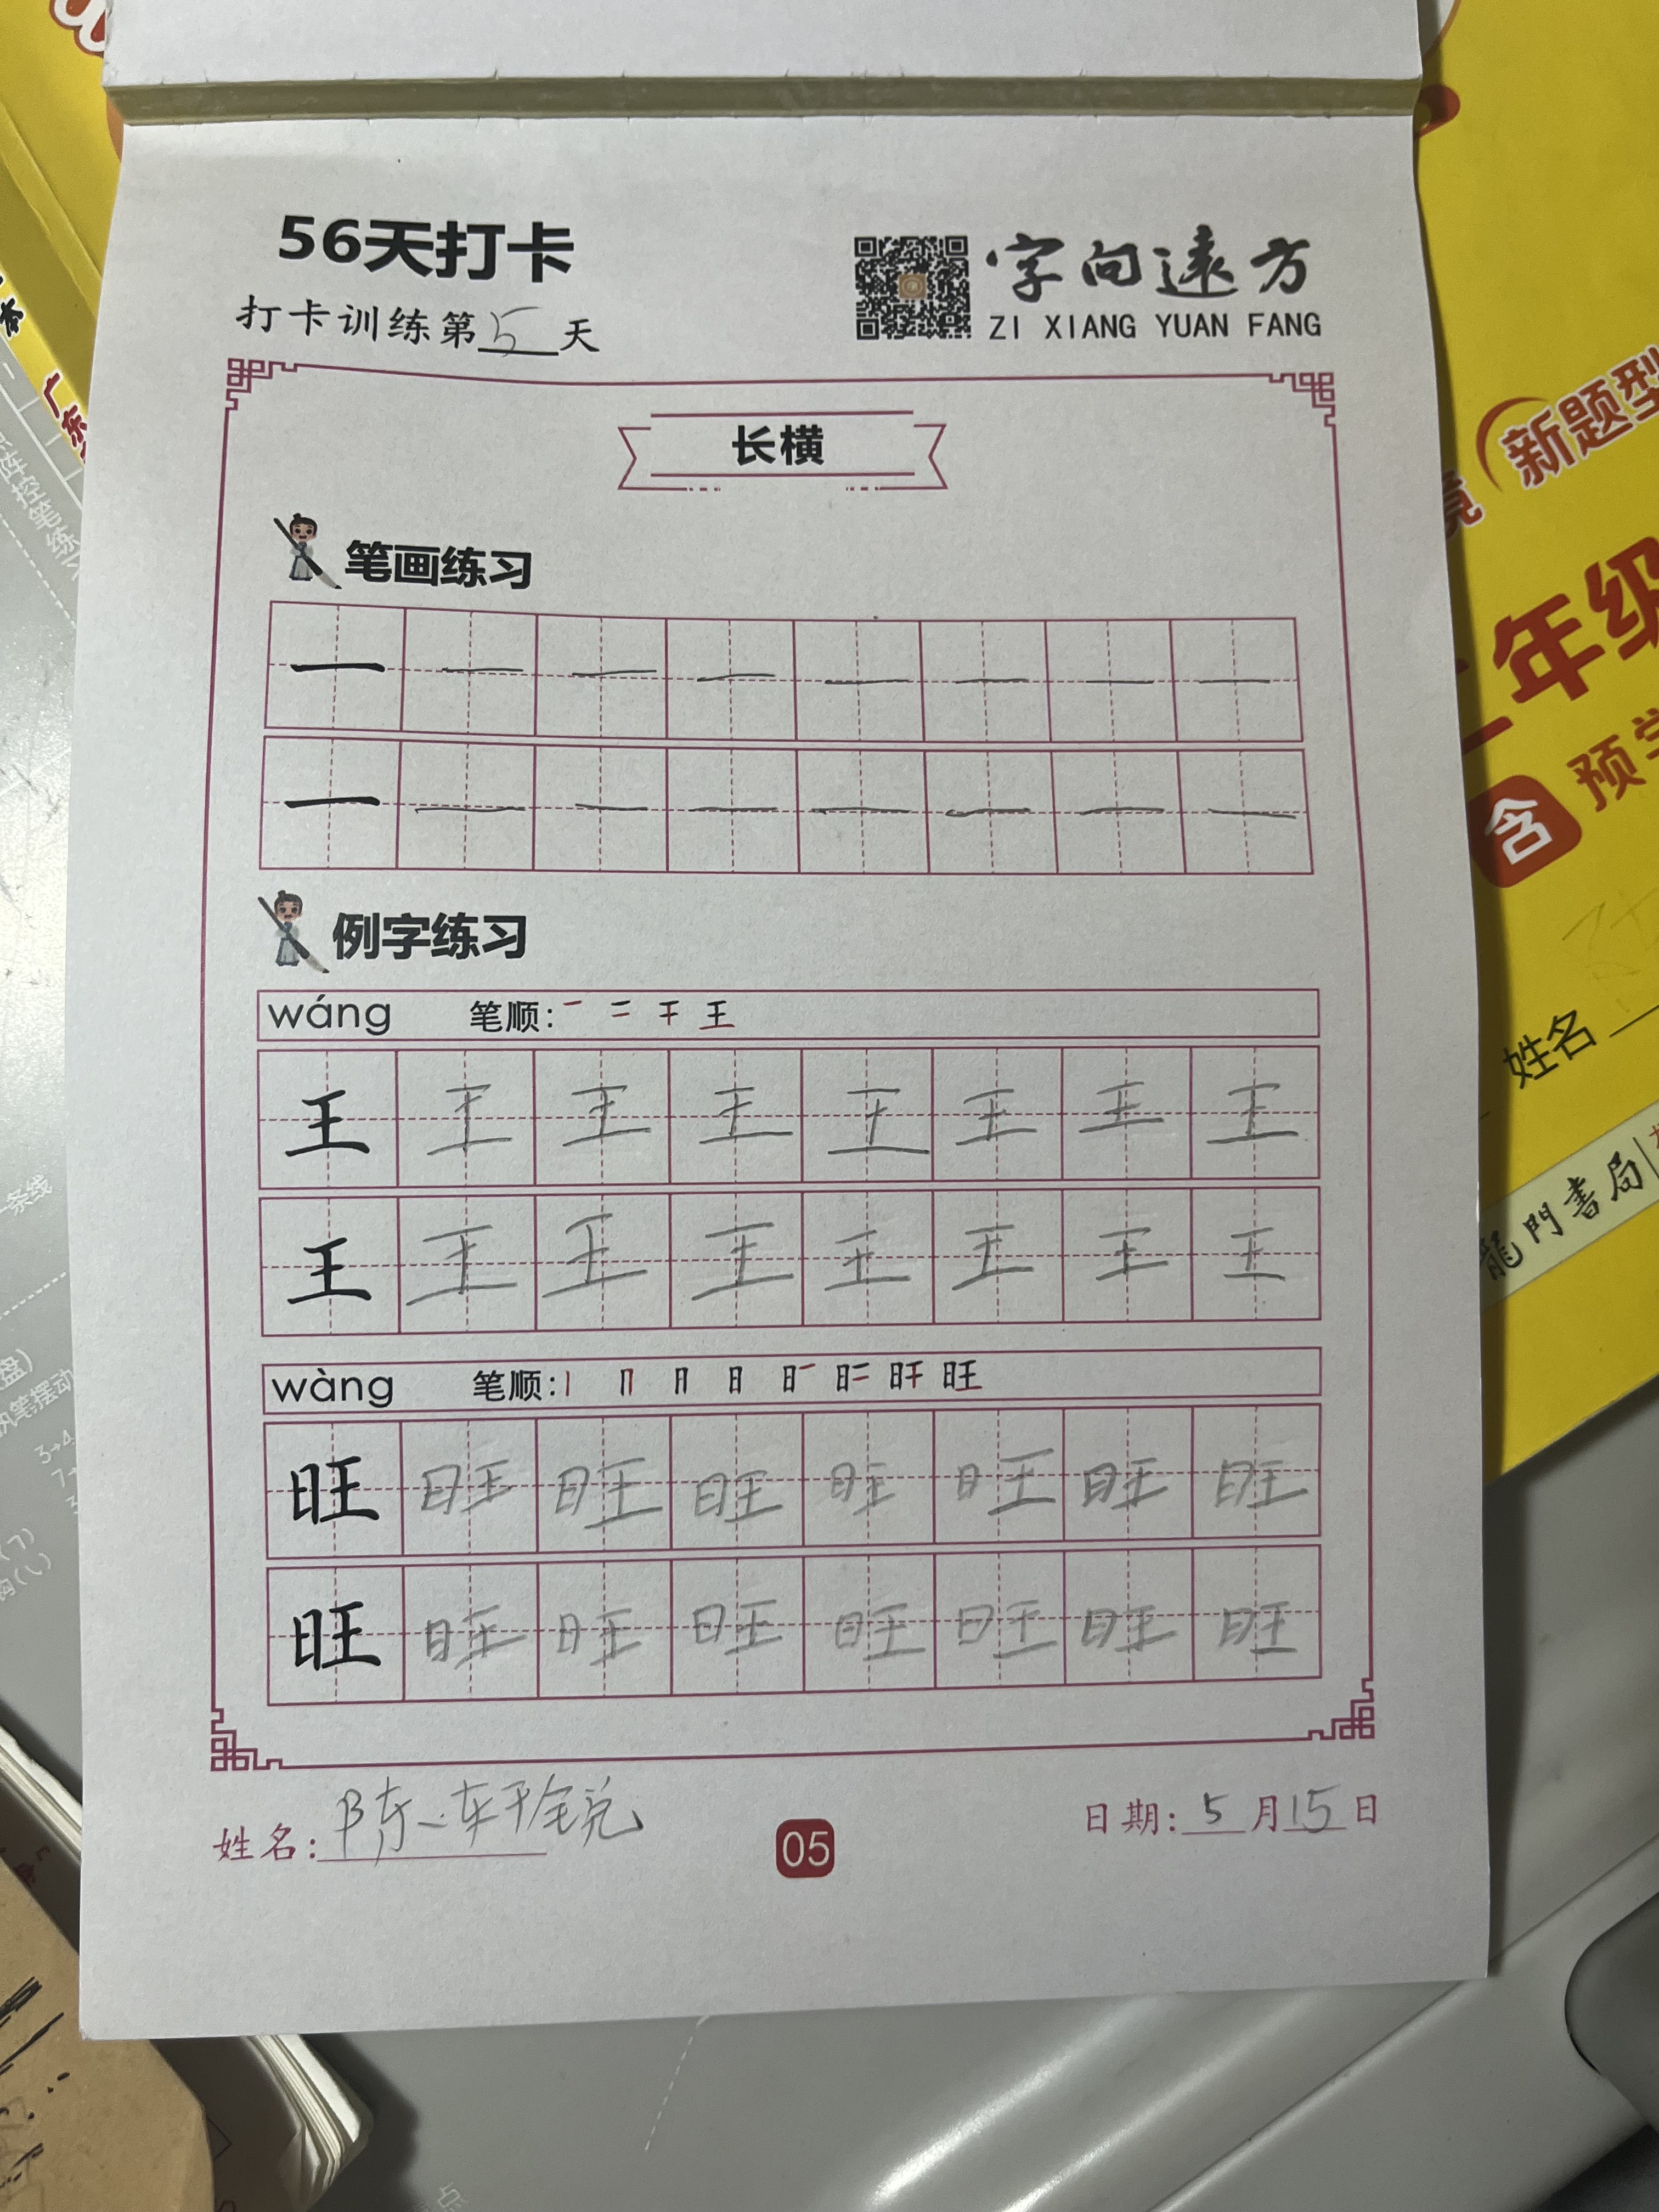 56天打卡
打卡训练第5天
字向远方
ZI XIANG YUAN FANG
长横
笔画练习
一 一 一 一 一 一 一 一
一 一 一 一 一 一 一 一
例字练习
wáng 笔顺: 一 二 干 王
王 王 王 王 王 王 王 王
王 王 王 王 王 王 王 王
wàng 笔顺: 丨 冂 月 日 日一 日二 日干 旺
旺 旺 旺 旺 旺 旺 旺 旺
旺 旺 旺 旺 旺 旺 旺 旺
姓名:陈
05
日期:5月15日
新题型
年级
含
预学
姓名
龍門書局
广东
阵控笔练
条线
盘)
执笔摆动
3→4